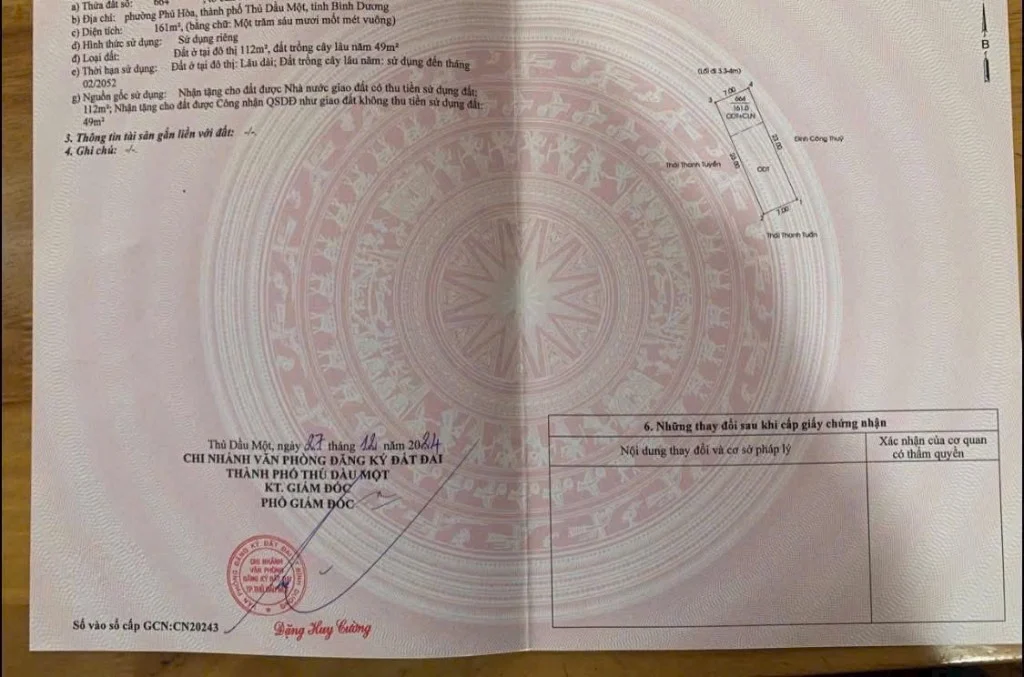 a) Thửa đất số: 664
b) Địa chỉ: phường Phú Hòa, thành phố Thủ Dầu Một, tỉnh Bình Dương
c) Diện tích: 161m², (bằng chữ: Một trăm sáu mươi mốt mét vuông)
d) Hình thức sử dụng: Sử dụng riêng
đ) Loại đất: Đất ở tại đô thị 112m², đất trồng cây lâu năm 49m²
e) Thời hạn sử dụng: Đất ở tại đô thị: Lâu dài; Đất trồng cây lâu năm: sử dụng đến tháng
02/2052
g) Nguồn gốc sử dụng: Nhận tặng cho đất được Nhà nước giao đất có thu tiền sử dụng đất:
112m²; Nhận tặng cho đất được Công nhận QSDĐ như giao đất không thu tiền sử dụng đất:
49m²
3. Thông tin tài sản gắn liền với đất: -/-.
4. Ghi chú: -/-.
B
(Lối đi 3.3-4m)
7.00
3
4
664
161.0
ODT+CLN
23.00
Đinh Công Thuỷ
Thái Thanh Tuyền
23.00
ODT
1
2
7.00
Thái Thanh Tuấn
Thủ Dầu Một, ngày 27 tháng 12 năm 2024
CHI NHÁNH VĂN PHÒNG ĐĂNG KÝ ĐẤT ĐAI
THÀNH PHỐ THỦ DẦU MỘT
KT. GIÁM ĐỐC
PHÓ GIÁM ĐỐC
VĂN PHÒNG ĐĂNG KÝ ĐẤT ĐAI TỈNH BÌNH DƯƠNG
CHI NHÁNH
VĂN PHÒNG
ĐĂNG KÝ ĐẤT ĐAI
TP.THỦ DẦU MỘT
Số vào sổ cấp GCN:CN20243
Đặng Huy Cường
6. Những thay đổi sau khi cấp giấy chứng nhận
Nội dung thay đổi và cơ sở pháp lý
Xác nhận của cơ quan
có thẩm quyền